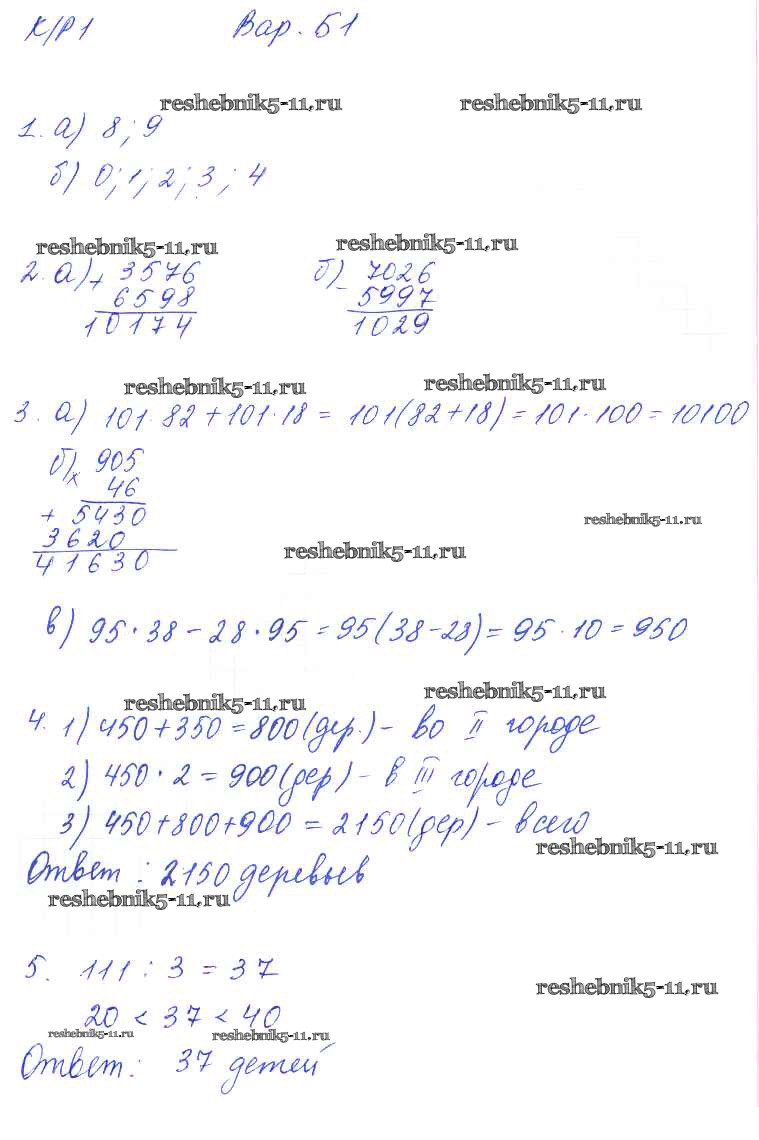 К/Р1 Вар. Б1
reshebnik5-11.ru reshebnik5-11.ru
1. а) 8; 9
б) 0; 1; 2; 3; 4
reshebnik5-11.ru reshebnik5-11.ru
2. а) + 3576 б) - 7026
6598 5997
10174 1029
reshebnik5-11.ru reshebnik5-11.ru
3. а) 101·82+101·18 = 101(82+18) = 101·100 = 10100
б) x 905
46
+ 5430
reshebnik5-11.ru
3620
reshebnik5-11.ru
41630
в) 95·38-28·95 = 95(38-28) = 95·10 = 950
reshebnik5-11.ru reshebnik5-11.ru
4. 1) 450+350 = 800 (дер.) - во II городе
2) 450·2 = 900 (дер) - в III городе
3) 450+800+900 = 2150 (дер) - всего
reshebnik5-11.ru
Ответ: 2150 деревьев
reshebnik5-11.ru
5. 111 : 3 = 37
reshebnik5-11.ru
20 < 37 < 40
reshebnik5-11.ru reshebnik5-11.ru
Ответ: 37 детей